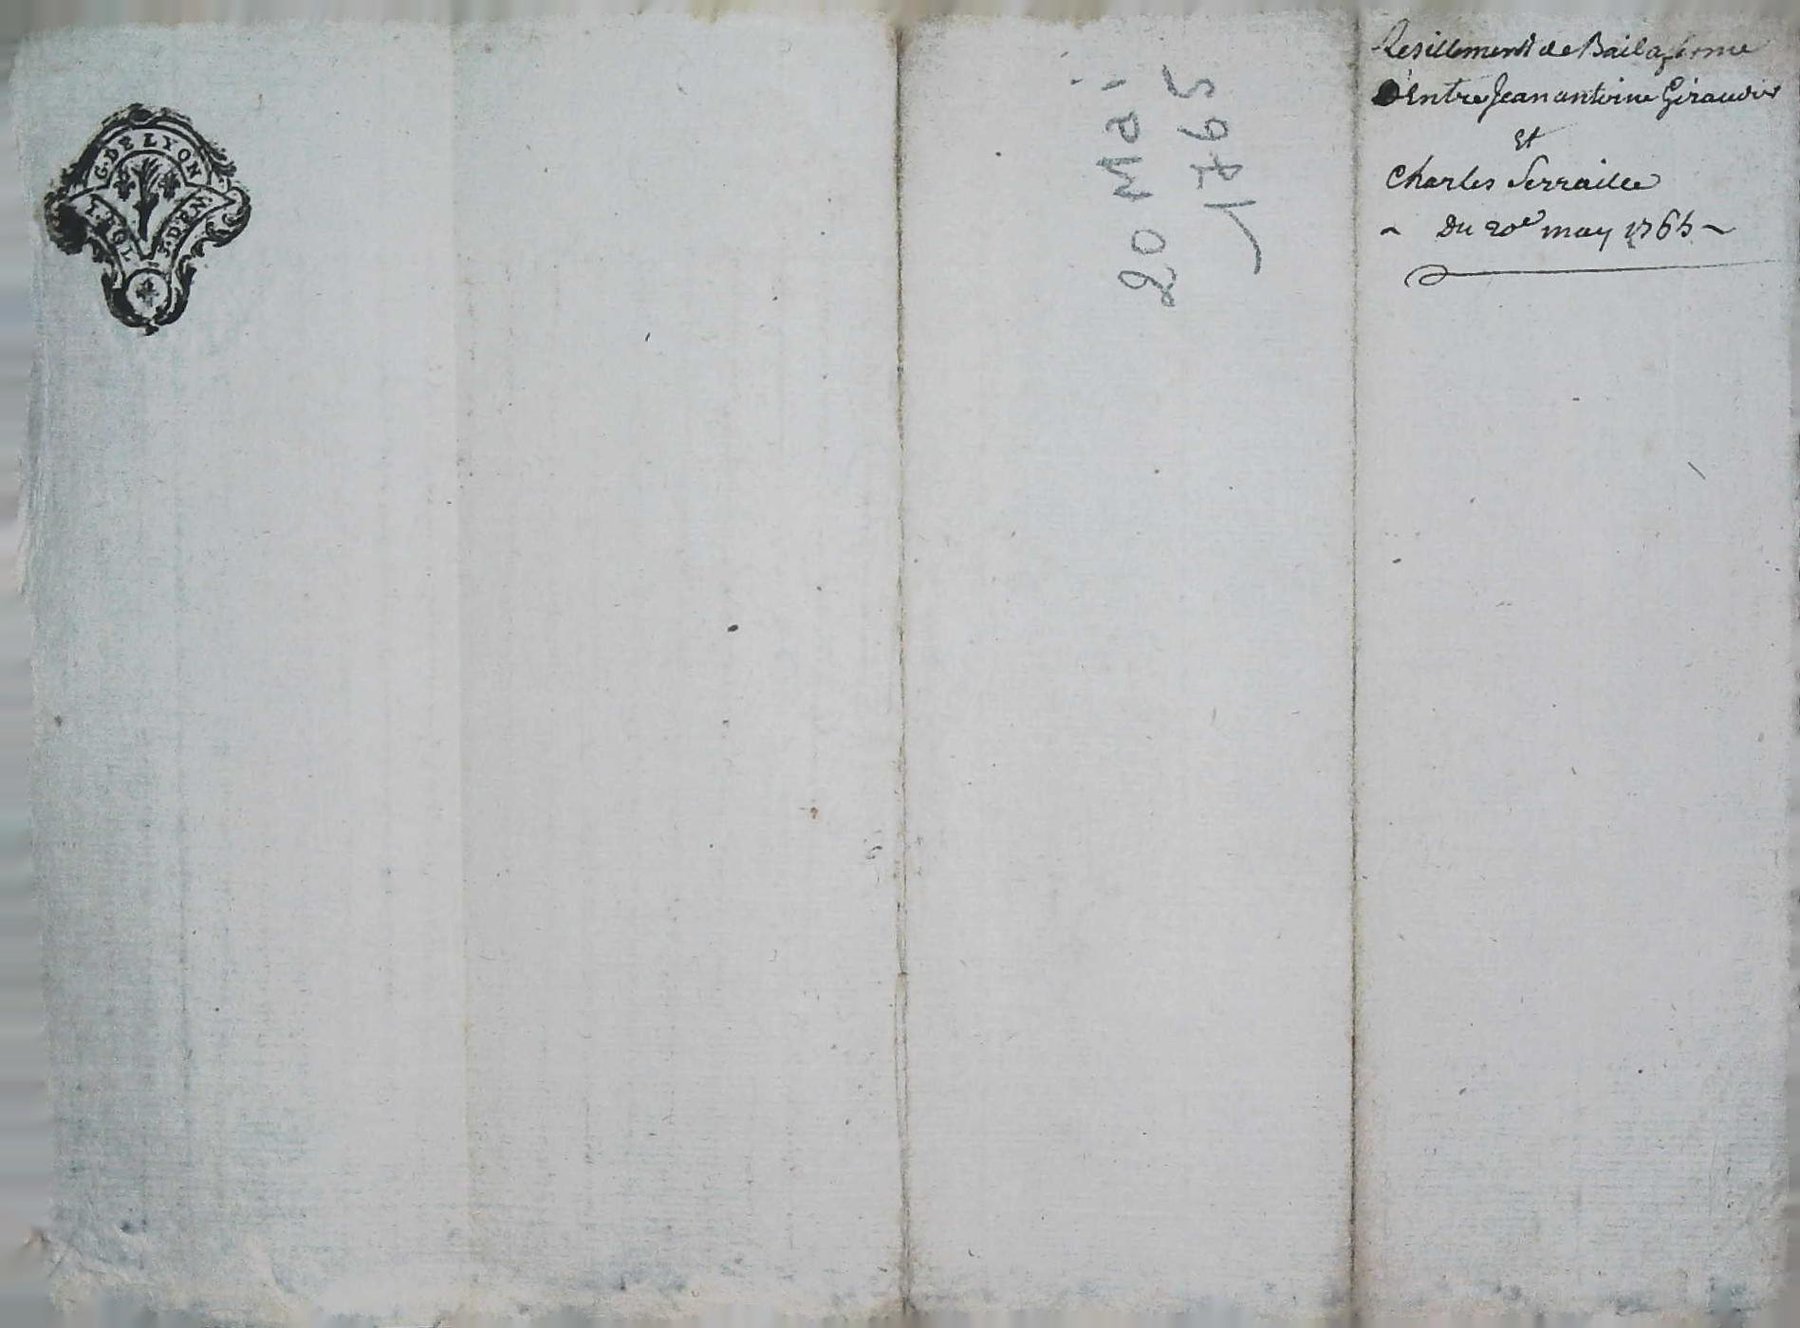 G. DE LYON
20 Mai
1765
Resillement de Bail a ferme
D'Entre Jean antoine Giraudier
Et
Charles Serraille
~ Du 20e may 1765 ~